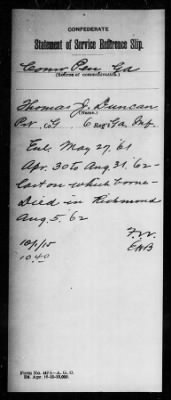 CONFEDERATE
Statement of Service Reference Slip.
Comr Pen Ga
(Source of communication.)
Thomas J. Duncan
(Name.)
Pvt, G, 6 Regt Ga. Inf.
Enl. May 27, 61
Apr. 30 to Aug. 31, '62-
last on which borne-
Died in Richmond
Aug. 5, 62
10/1/15
1040
EHB
Form No. 447-A. G. O.